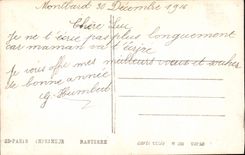 Montbard 30 Décembre 1916
Chère Luce
Je ne t'écris pas plus longuement
car maman va t'écrire
Je vous offre mes meilleurs vœux et souhaits
de bonne année
G. Humbert
NANTERRE